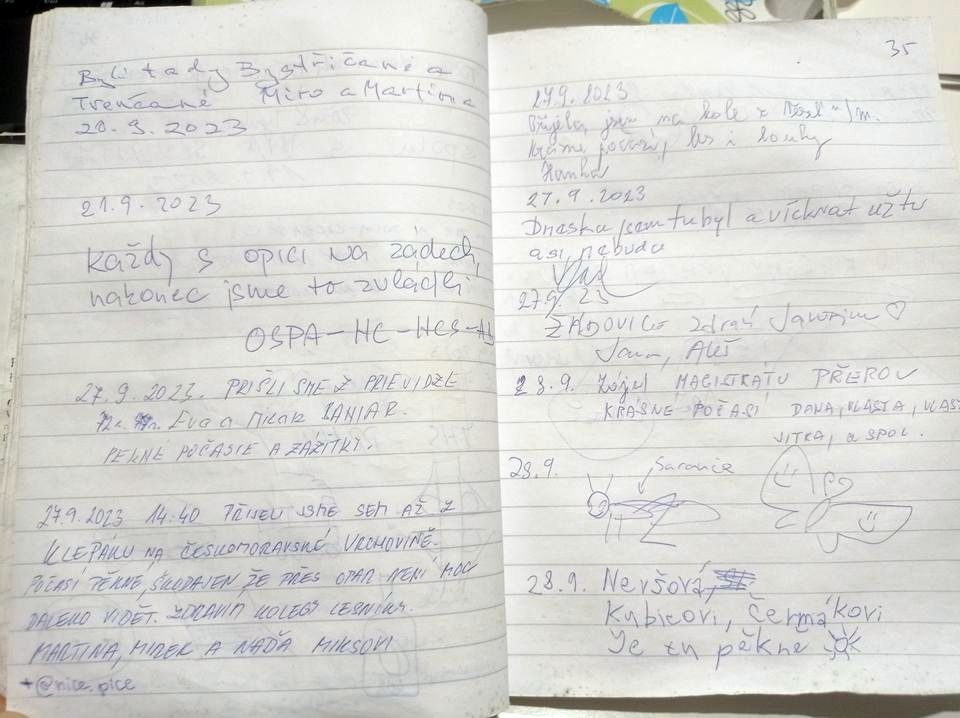 Byli tady Bystřičané a
Trenčané Miro a Martina
20.9.2023
21.9.2023
každý s opicí na zádech,
nakonec jsme to zvládli
OSPA-HC-HCS-
27.9.2023. PRIŠLI SME Z PRIEVIDZE
Eva a
PEKNÉ POČASIE A ZÁŽITKY.
27.9.2023 14.40 PŘIJELI JSME SEM AŽ Z
KLEPÁKU NA ČESKOMORAVSKÉ VRCHOVINĚ.
POČASÍ PĚKNÉ, ŠKODA JEN ŽE PŘES OPAR NENÍ MOC
DALEKO VIDĚT. ZDRAVÍM KOLEGY LESNÍKY.
MARTINA, MIREK A NAĎA MIKSOVI
+@nice.pice
35
27.9.2023
jsem na kole z
Krásné počasí, les i louky
Hanka
27.9.2023
Dneska jsem tu byl a víckrát už tu
asi nebudu
27.9. 23
ŽÁDOVICE zdraví Javorinu ♡
Jana, Aleš
28.9. Zájezd MAGISTRÁTU PŘEROV
KRÁSNÉ POČASÍ DANA, VLASTA, VLAST
JITKA, a SPOL.
28.9.
Saranče
28.9. Nevšová,
Kubicovi, Čermákovi
Je tu pěkně